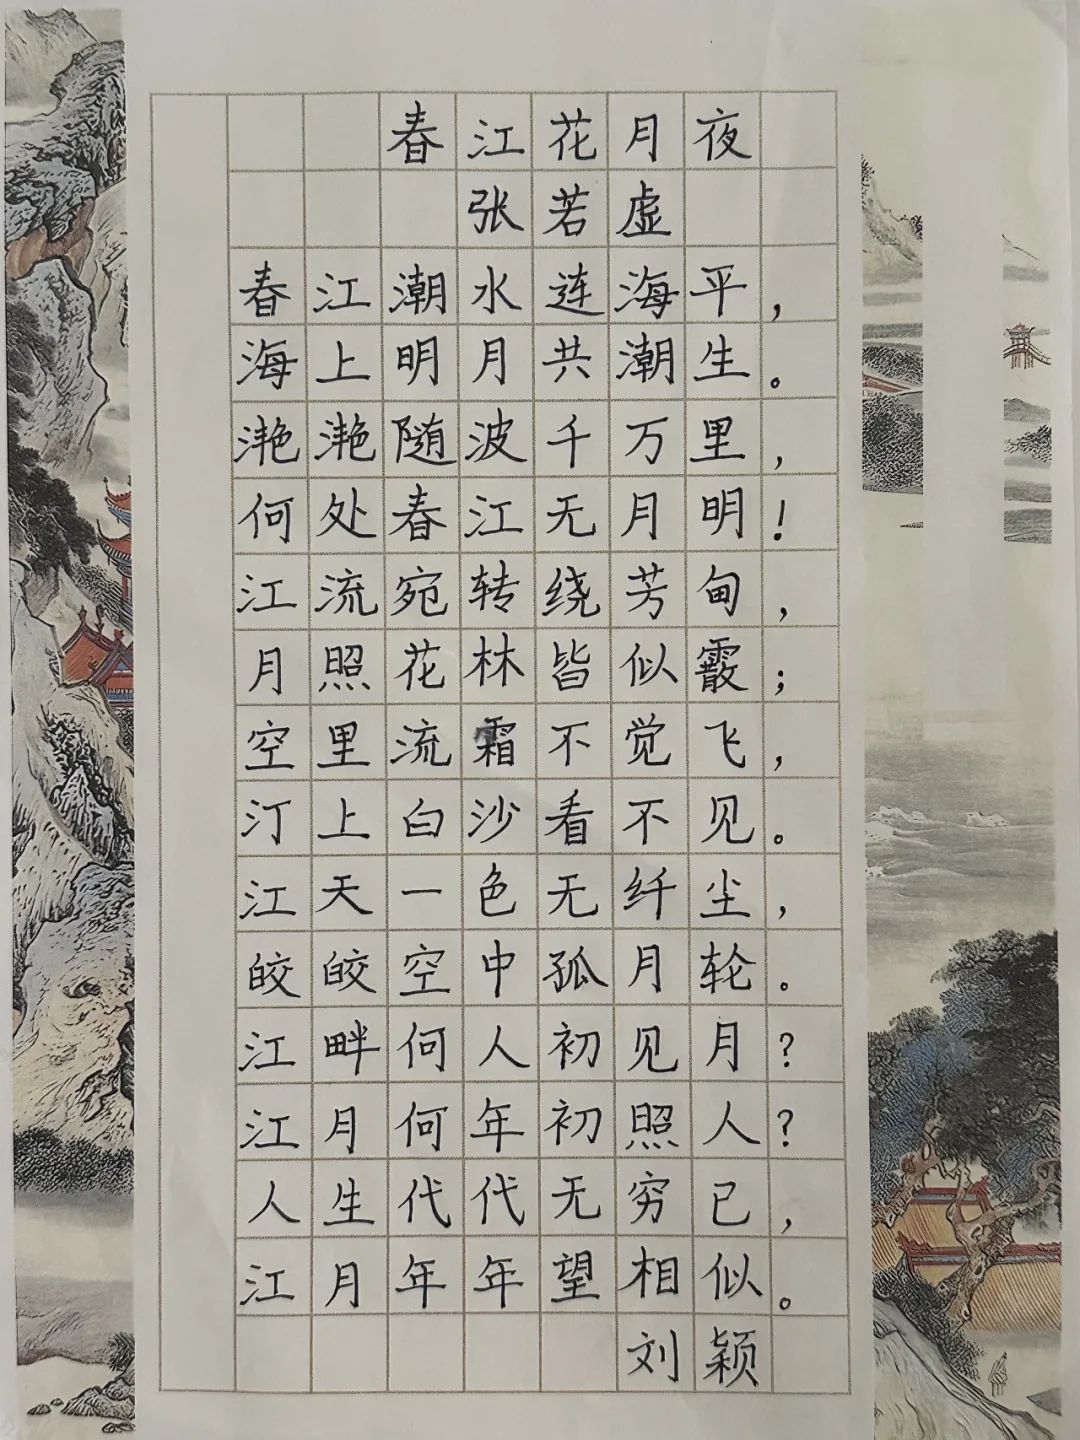 春江花月夜
张若虚
春江潮水连海平，
海上明月共潮生。
滟滟随波千万里，
何处春江无月明！
江流宛转绕芳甸，
月照花林皆似霰；
空里流霜不觉飞，
汀上白沙看不见。
江天一色无纤尘，
皎皎空中孤月轮。
江畔何人初见月？
江月何年初照人？
人生代代无穷已，
江月年年望相似。
刘颖